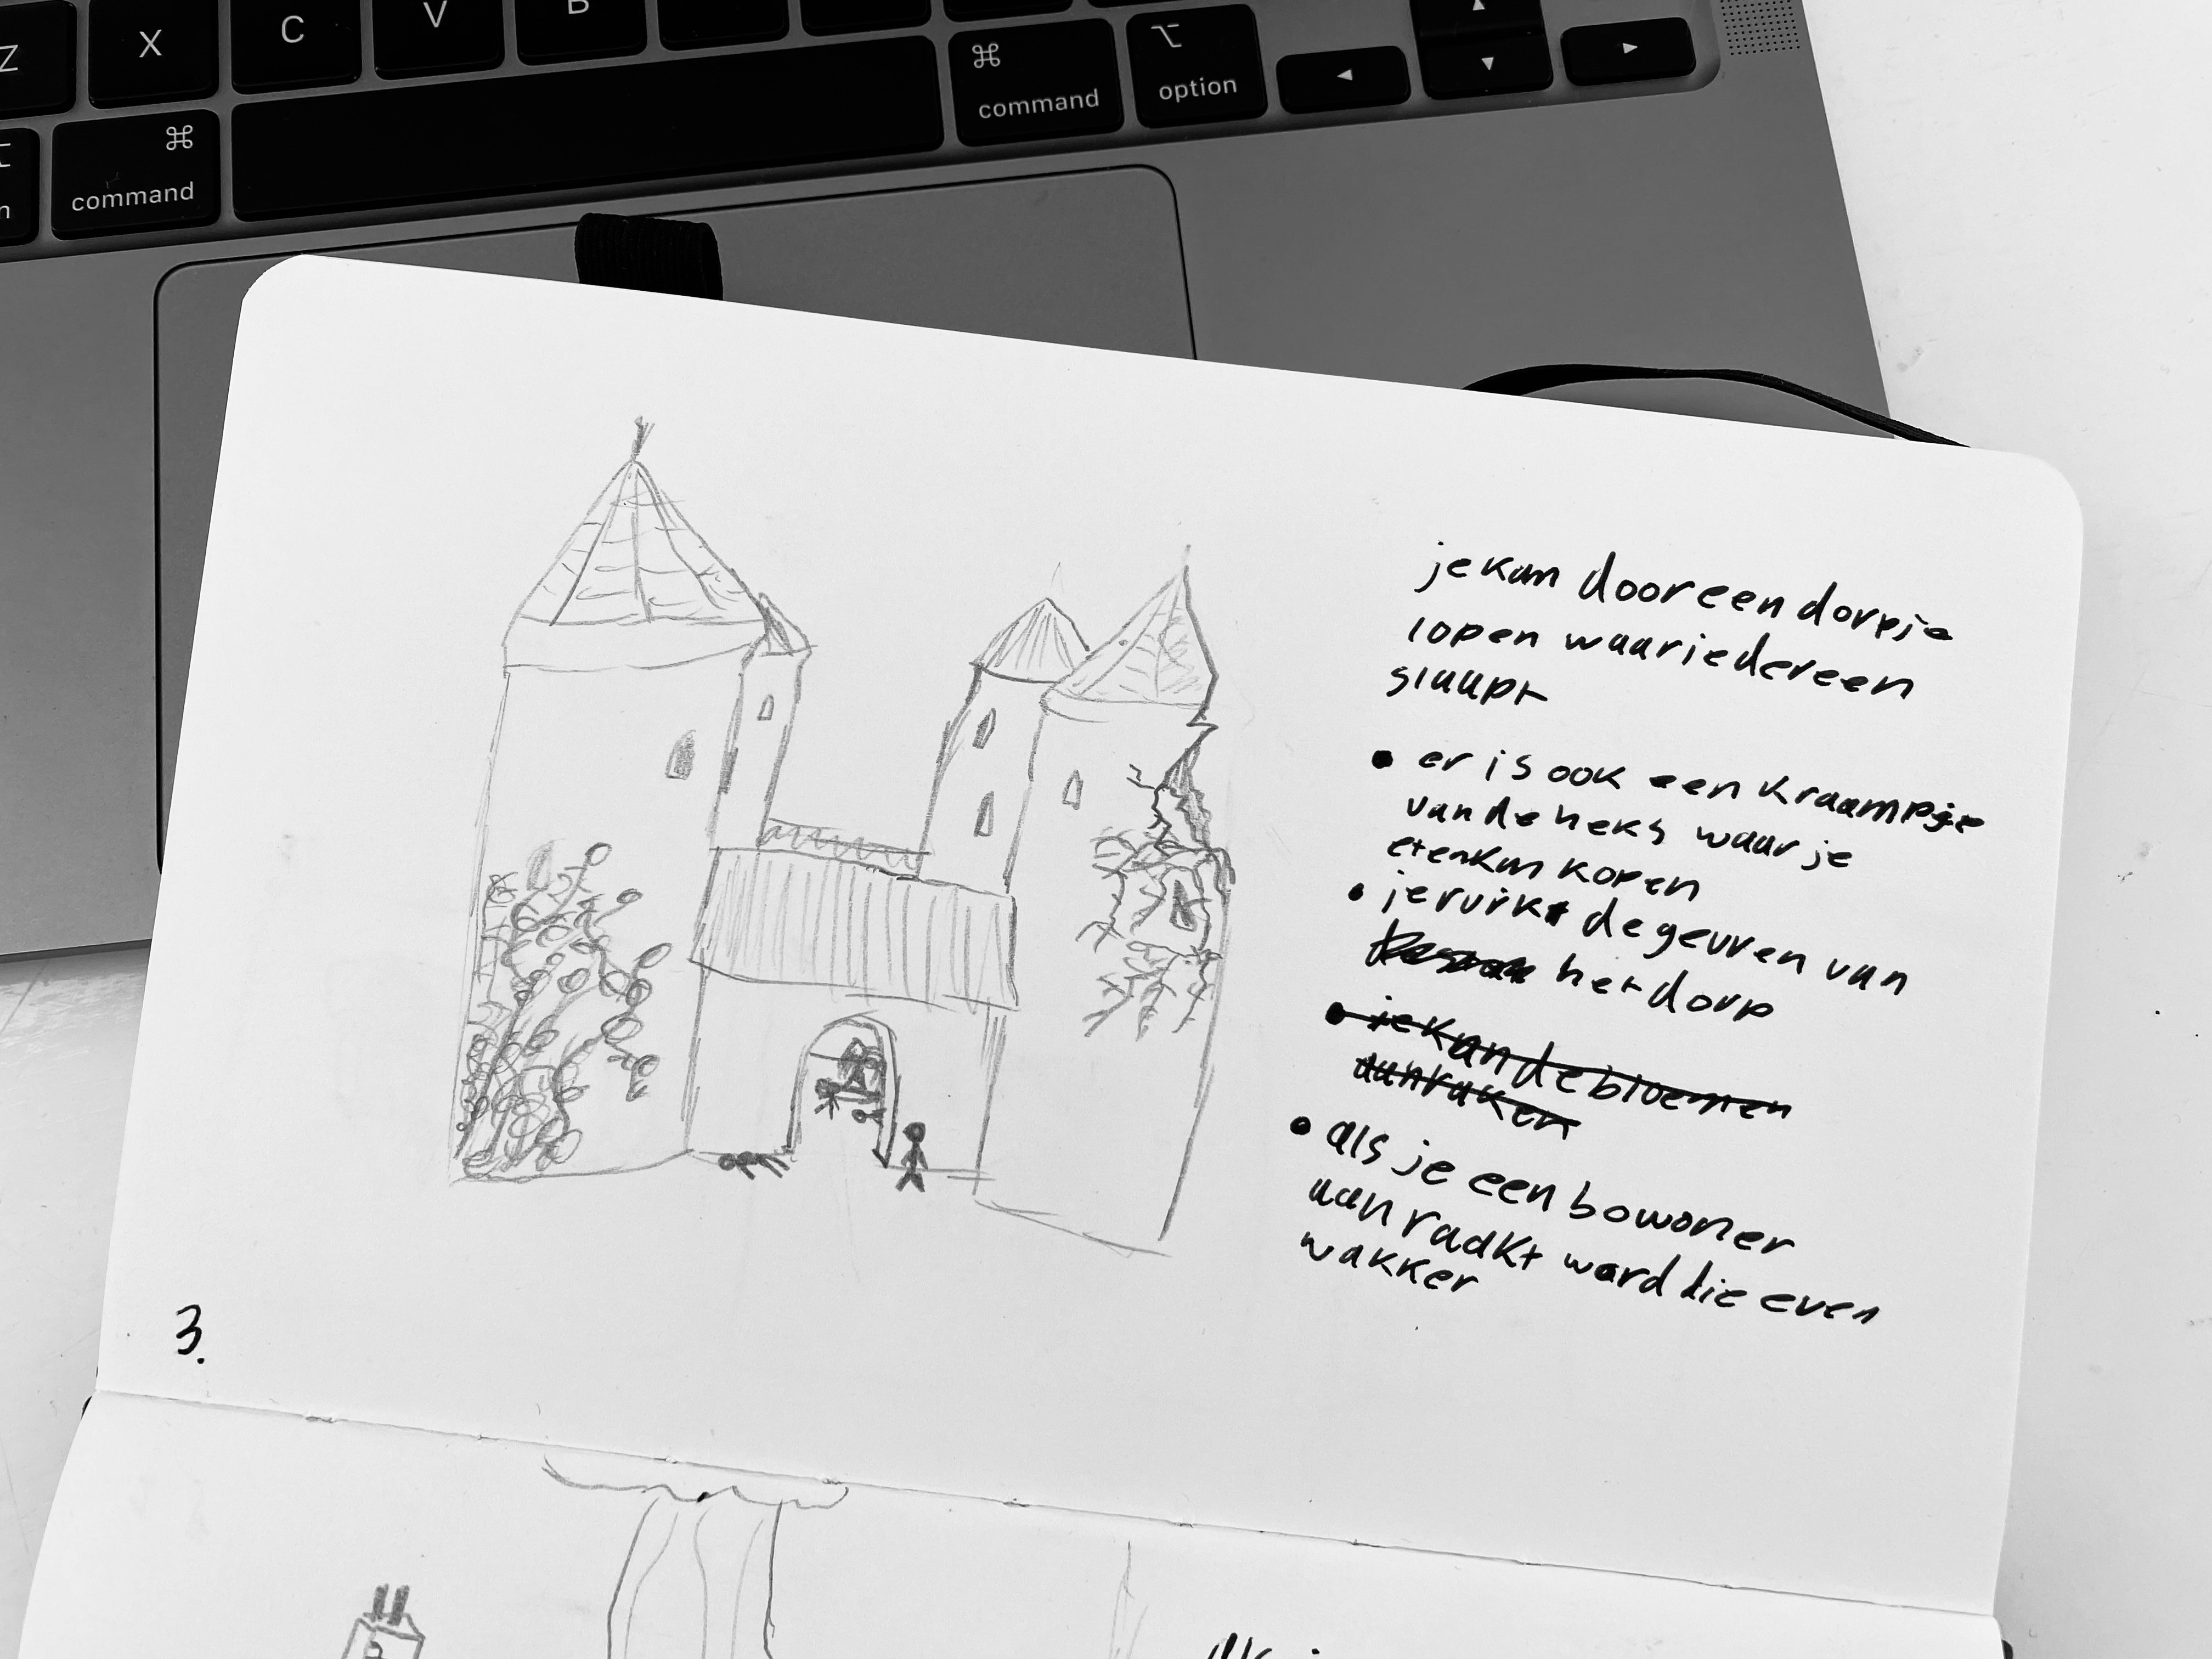 Z X C V B
⌘ command
⌘ command
⌥ option
je kan door een dorpje
lopen waar iedereen
slaapt
• er is ook een kraampje
van de heks waar je
eten kan kopen
• je ruikt de geuren van
het dorp
• je kan de bloemen
aanraken
• als je een bowoner
aan raakt word die even
wakker
3.